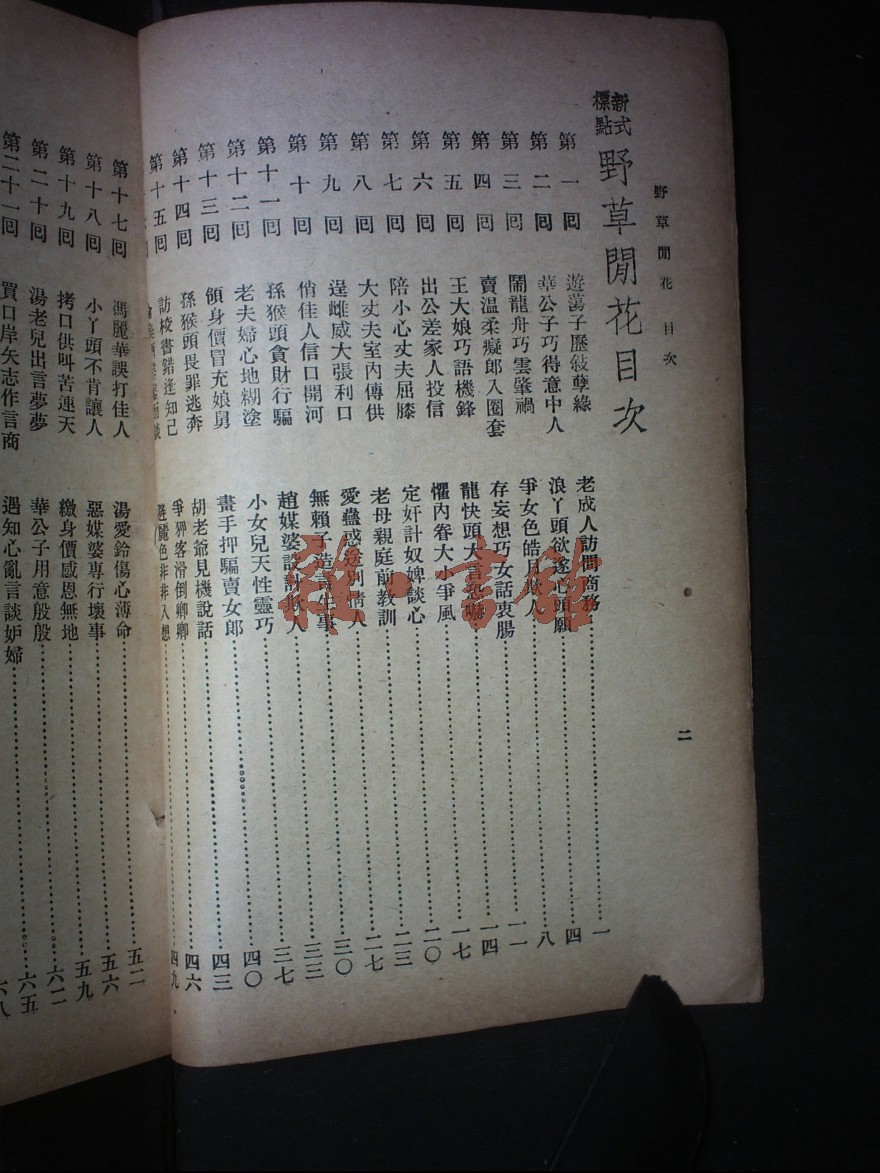 野草閒花 目次
二
新式標點 野草閒花目次
第一回 遊蕩子歷敍孽緣 老成人訪問商務 一
第二回 華公子巧得意中人 浪丫頭欲遂心頭願 四
第三回 鬧龍舟巧雲肇禍 爭女色皓月欺人 八
第四回 賣溫柔癡郎入圈套 存妄想巧女話衷腸 一一
第五回 王大娘巧語機鋒 龍快頭大言恐嚇 一四
第六回 出公差家人投信 懼內眷大小爭風 一七
第七回 陪小心丈夫屈膝 定奸計奴婢談心 二〇
第八回 大丈夫室內傳供 老母親庭前教訓 二三
第九回 逞雌威大張利口 愛蠱惑 情人 二七
第十回 俏佳人信口開河 無賴子造 生事 三〇
第十一回 孫猴頭貪財行騙 趙媒婆設計欺人 三三
第十二回 老夫婦心地糊塗 小女兒天性靈巧 三七
第十三回 領身價冒充娘舅 畫手押騙賣女郎 四〇
第十四回 孫猴頭畏罪逃奔 胡老爺見機說話 四三
第十五回 訪校書錯逢知己 爭狎客滑倒卿卿 四六
避麗色非非入想 四九
第十七回 馮麗華誤打佳人 湯愛鈴傷心薄命 五二
第十八回 小丫頭不肯讓人 惡媒婆專行壞事 五六
第十九回 拷口供叫苦連天 繳身價感恩無地 五九
第二十回 湯老兒出言夢夢 華公子用意殷殷 六二
第二十一回 買口岸矢志作言商 遇知心亂言談妒婦 六五
六八